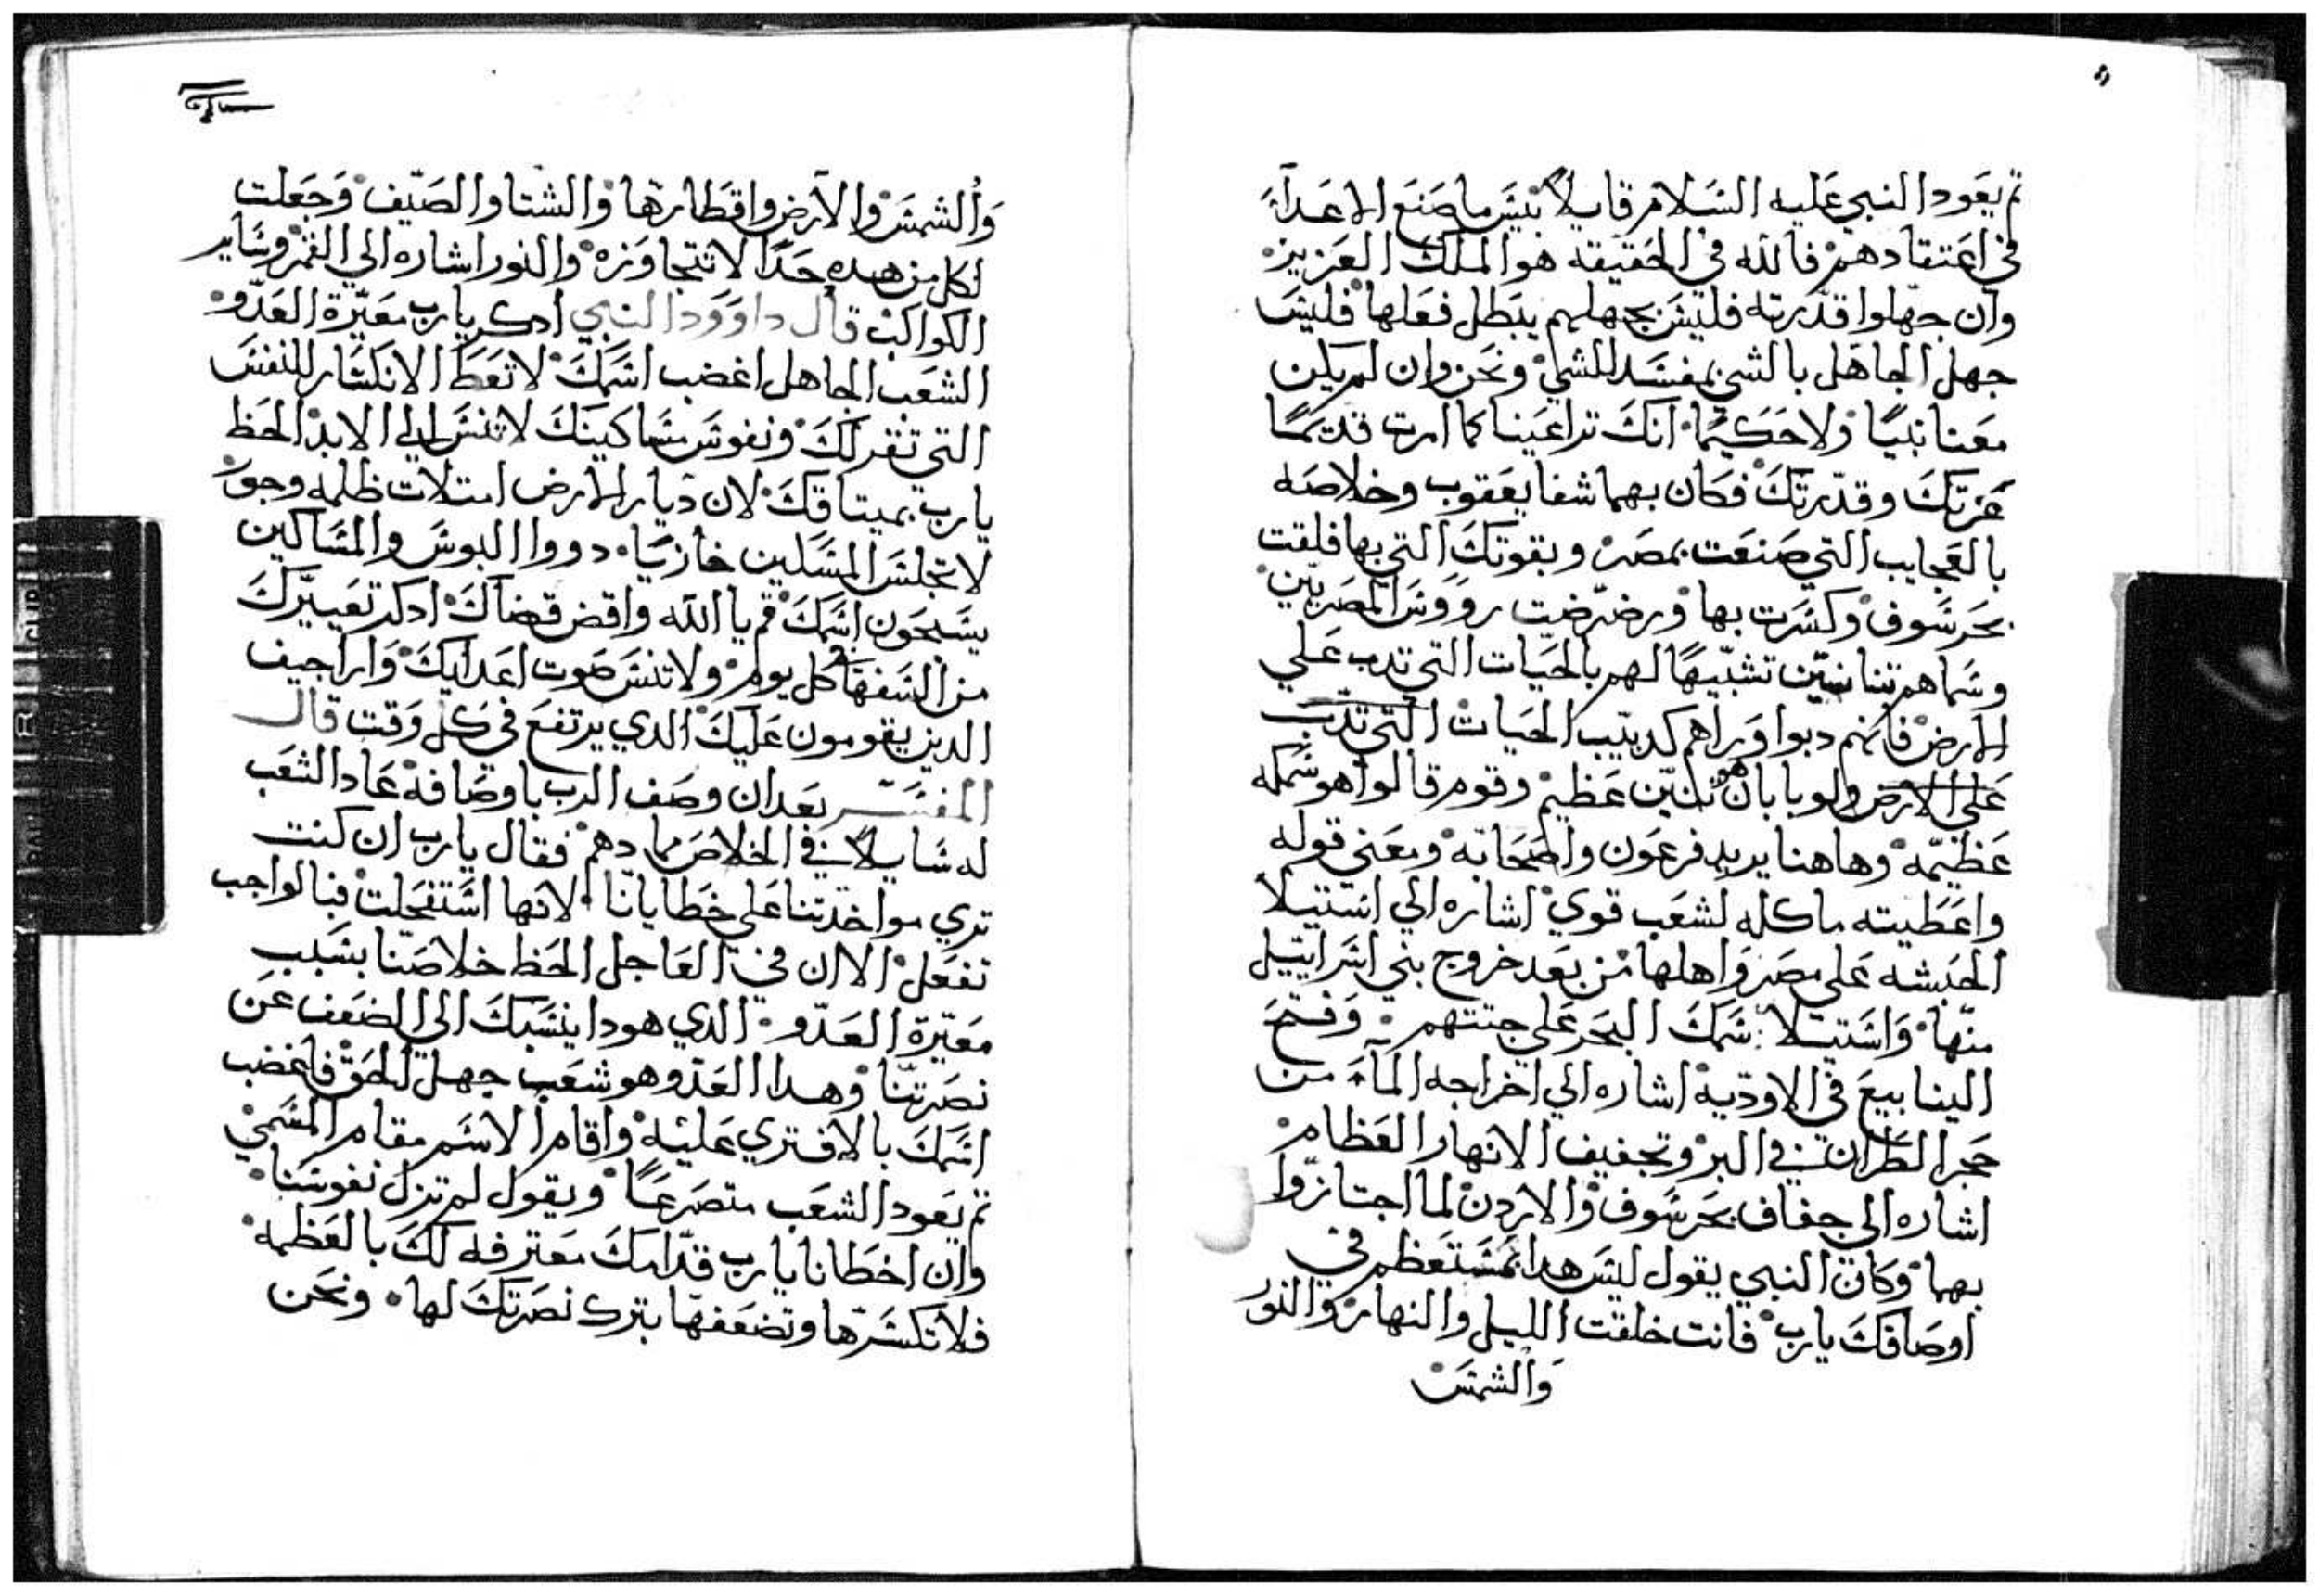 ثم يعود النبي عليه السلام قايلا بيس ما صنع الاعداء
في اعتقادهم فالله في الحقيقه هو الملك العزيز
وان جهلوا قدرته فليس بجهلهم يبطل فعلها فليس
جهل الجاهل بالشي بمفسد للشي ونحن وان لم يكن
معنا نبيا ولا حكيما انك تراعينا كما امرت قديما
عزتك وقدرتك فكان بهما شفا يعقوب وخلاصه
بالعجايب التي صنعت بمصر وبقوتك التي بها فلقت
بحر سوف وكسرت بها ورضرضت رووس المصريين
وسماهم تنانين تشبيها لهم بالحيات التي تدب علي
الارض فانهم دبوا وراهم كدبيب الحيات التي تدب
علي الارض ولوياتان هو تنين عظيم وقوم قالوا هو سمكه
عظيمه وهاهنا يريد فرعون واصحابه ومعني قوله
واعطيته ماكله لشعب قوي اشاره الي استيلا
الحبشه علي مصر واهلها من بعد خروج بني اسراييل
منها واستيلا سمك البحر علي جتتهم وفتح
الينابيع في الاوديه اشاره الي اخراجه الماء من
حجر الظران في البر وتجفيف الانهار العظام
اشاره الي جفاف بحر سوف والاردن لما اجتازوا
بهما وكان النبي يقول ليس هدا بمستعظم في
اوصافك يارب فانت خلقت الليل والنهار والنور
والشمس
والشمس والارض واقطارها والشتا والصيف وجعلت
لكل من هده حدا لا تتجاوزه والنور اشاره الي القمر وساير
الكواكب قال داوود النبي ادكر يارب معيرة العدو
الشعب الجاهل اغضب اسمك لا تعط الانكسار للنفس
التي تقر لك ونفوس مساكينك لا تنس الي الابد الحظ
يارب بميتاقك لان ديار الارض امتلات ظلمه وجور
لا تجلس المسكين خازيا دووا البوس والمساكين
يسبحون اسمك قم يا الله واقض قضاك ادكر تعييرك
من السفها كل يوم ولا تنس صوت اعدايك واراجيف
الدين يقومون عليك الدي يرتفع في كل وقت قال
المفسر بعد ان وصف الرب باوصافه عاد الشعب
له سايلا في الخلاص مما دهم فقال يارب ان كنت
تري مواخدتنا علي خطايانا لانها استفحلت فبالواجب
تفعل الا ان في العاجل الحظ خلاصنا بسبب
معيرة العدو الدي هودا ينسبك الي الضعف عن
نصرتنا وهدا العدو هو شعب جهل الحق فاغضب
اسمك بالافتري عليه واقام الاسم مقام المسمي
ثم يعود الشعب متضرعا ويقول لم تزل نفوسنا
وان اخطانا يارب قدامك معترفه لك بالعظمه
فلا تكسرها وتضعفها بترك نصرتك لها ونحن